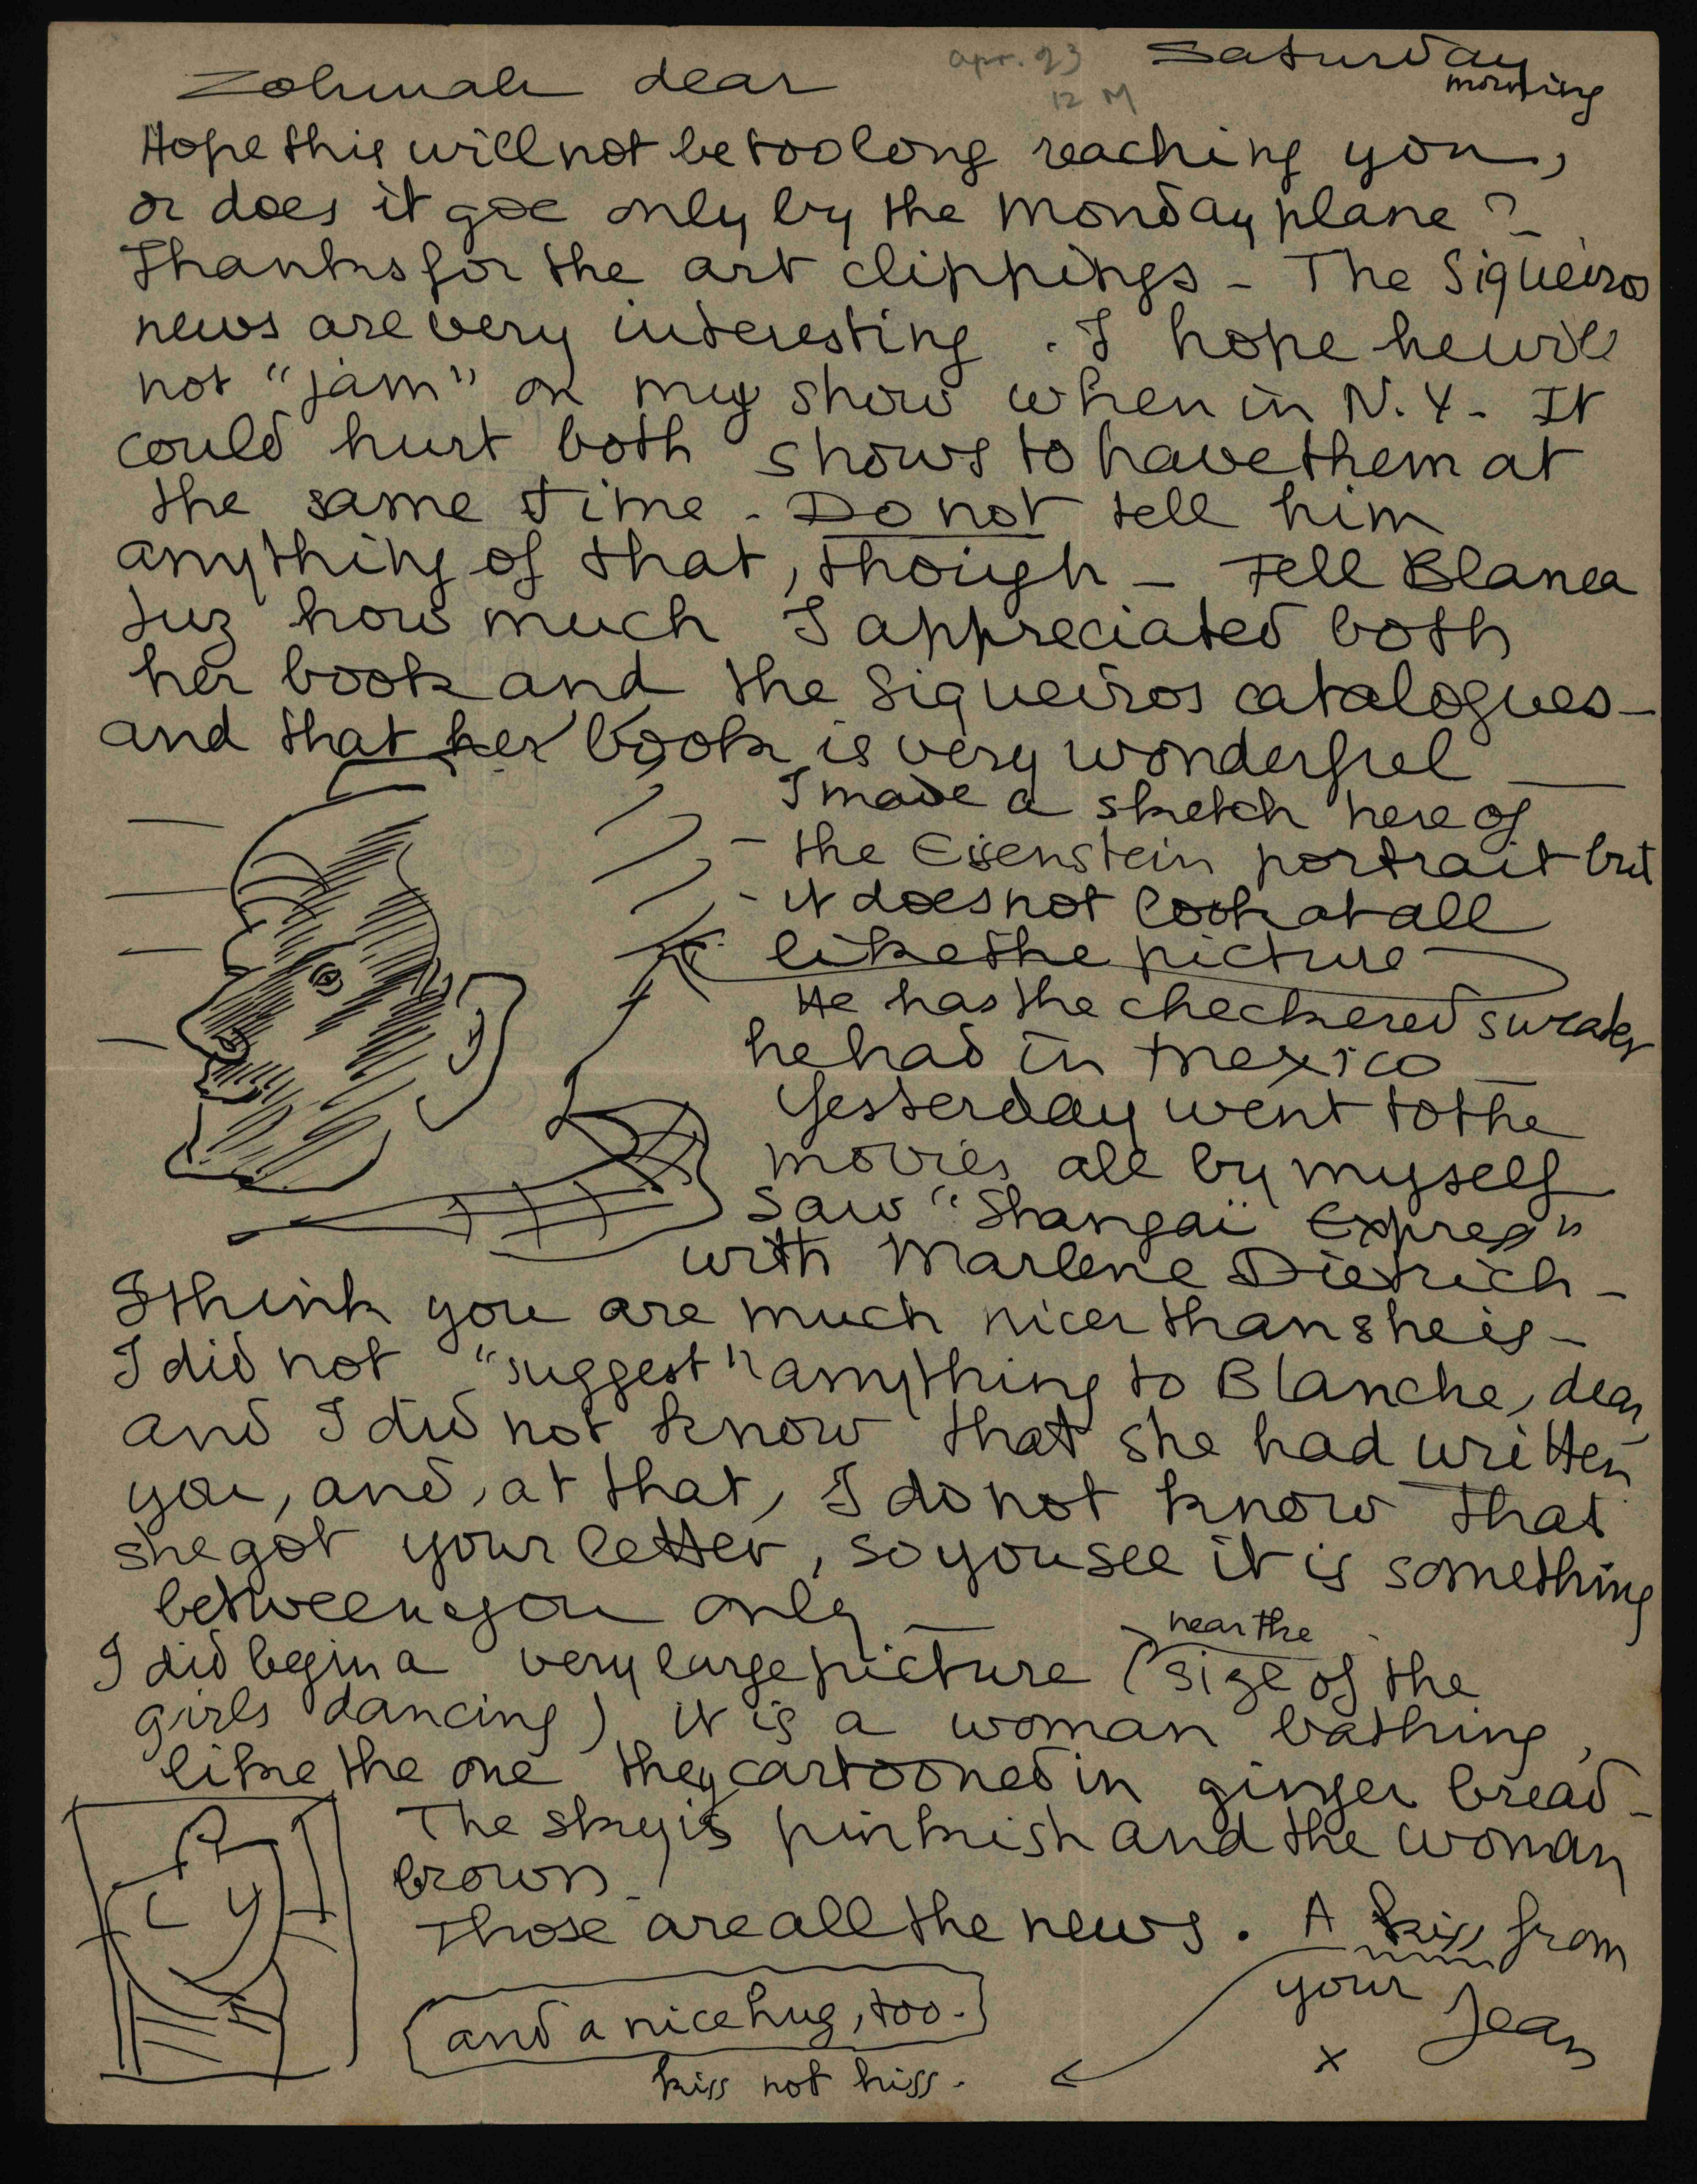 Saturday
morning
apr. 23
12 M
Zohmah dear
Hope this will not be too long reaching you,
or does it goe only by the monday plane?
Thanks for the art clippings - The Siqueiros
news are very interesting. I hope he will
not "jam" on my show when in N.Y. - It
could hurt both shows to have them at
the same time - Do not tell him
anything of that, though - Tell Blanca
Luz how much I appreciated both
her book and the Siqueiros catalogues -
and that her book is very wonderful -
I made a sketch here of
the Eisenstein portrait but
it does not look at all
like the picture
He has the checkered sweater
he had in Mexico -
Yesterday went to the
movies all by myself
Saw "Shangaï Express"
with Marlene Dietrich -
I think you are much nicer than she is -
I did not "suggest" anything to Blanche, dear,
and I did not know that she had written
you, and, at that, I do not know that
she got your letter, so you see it is something
between you only -
I did begin a very large picture (near the size of the
girls dancing) it is a woman bathing,
like the one they cartooned in ginger bread -
The sky is pinkish and the woman
brown -
Those are all the news. A kiss from
your Jean
x
and a nice hug, too.
kiss not hiss.